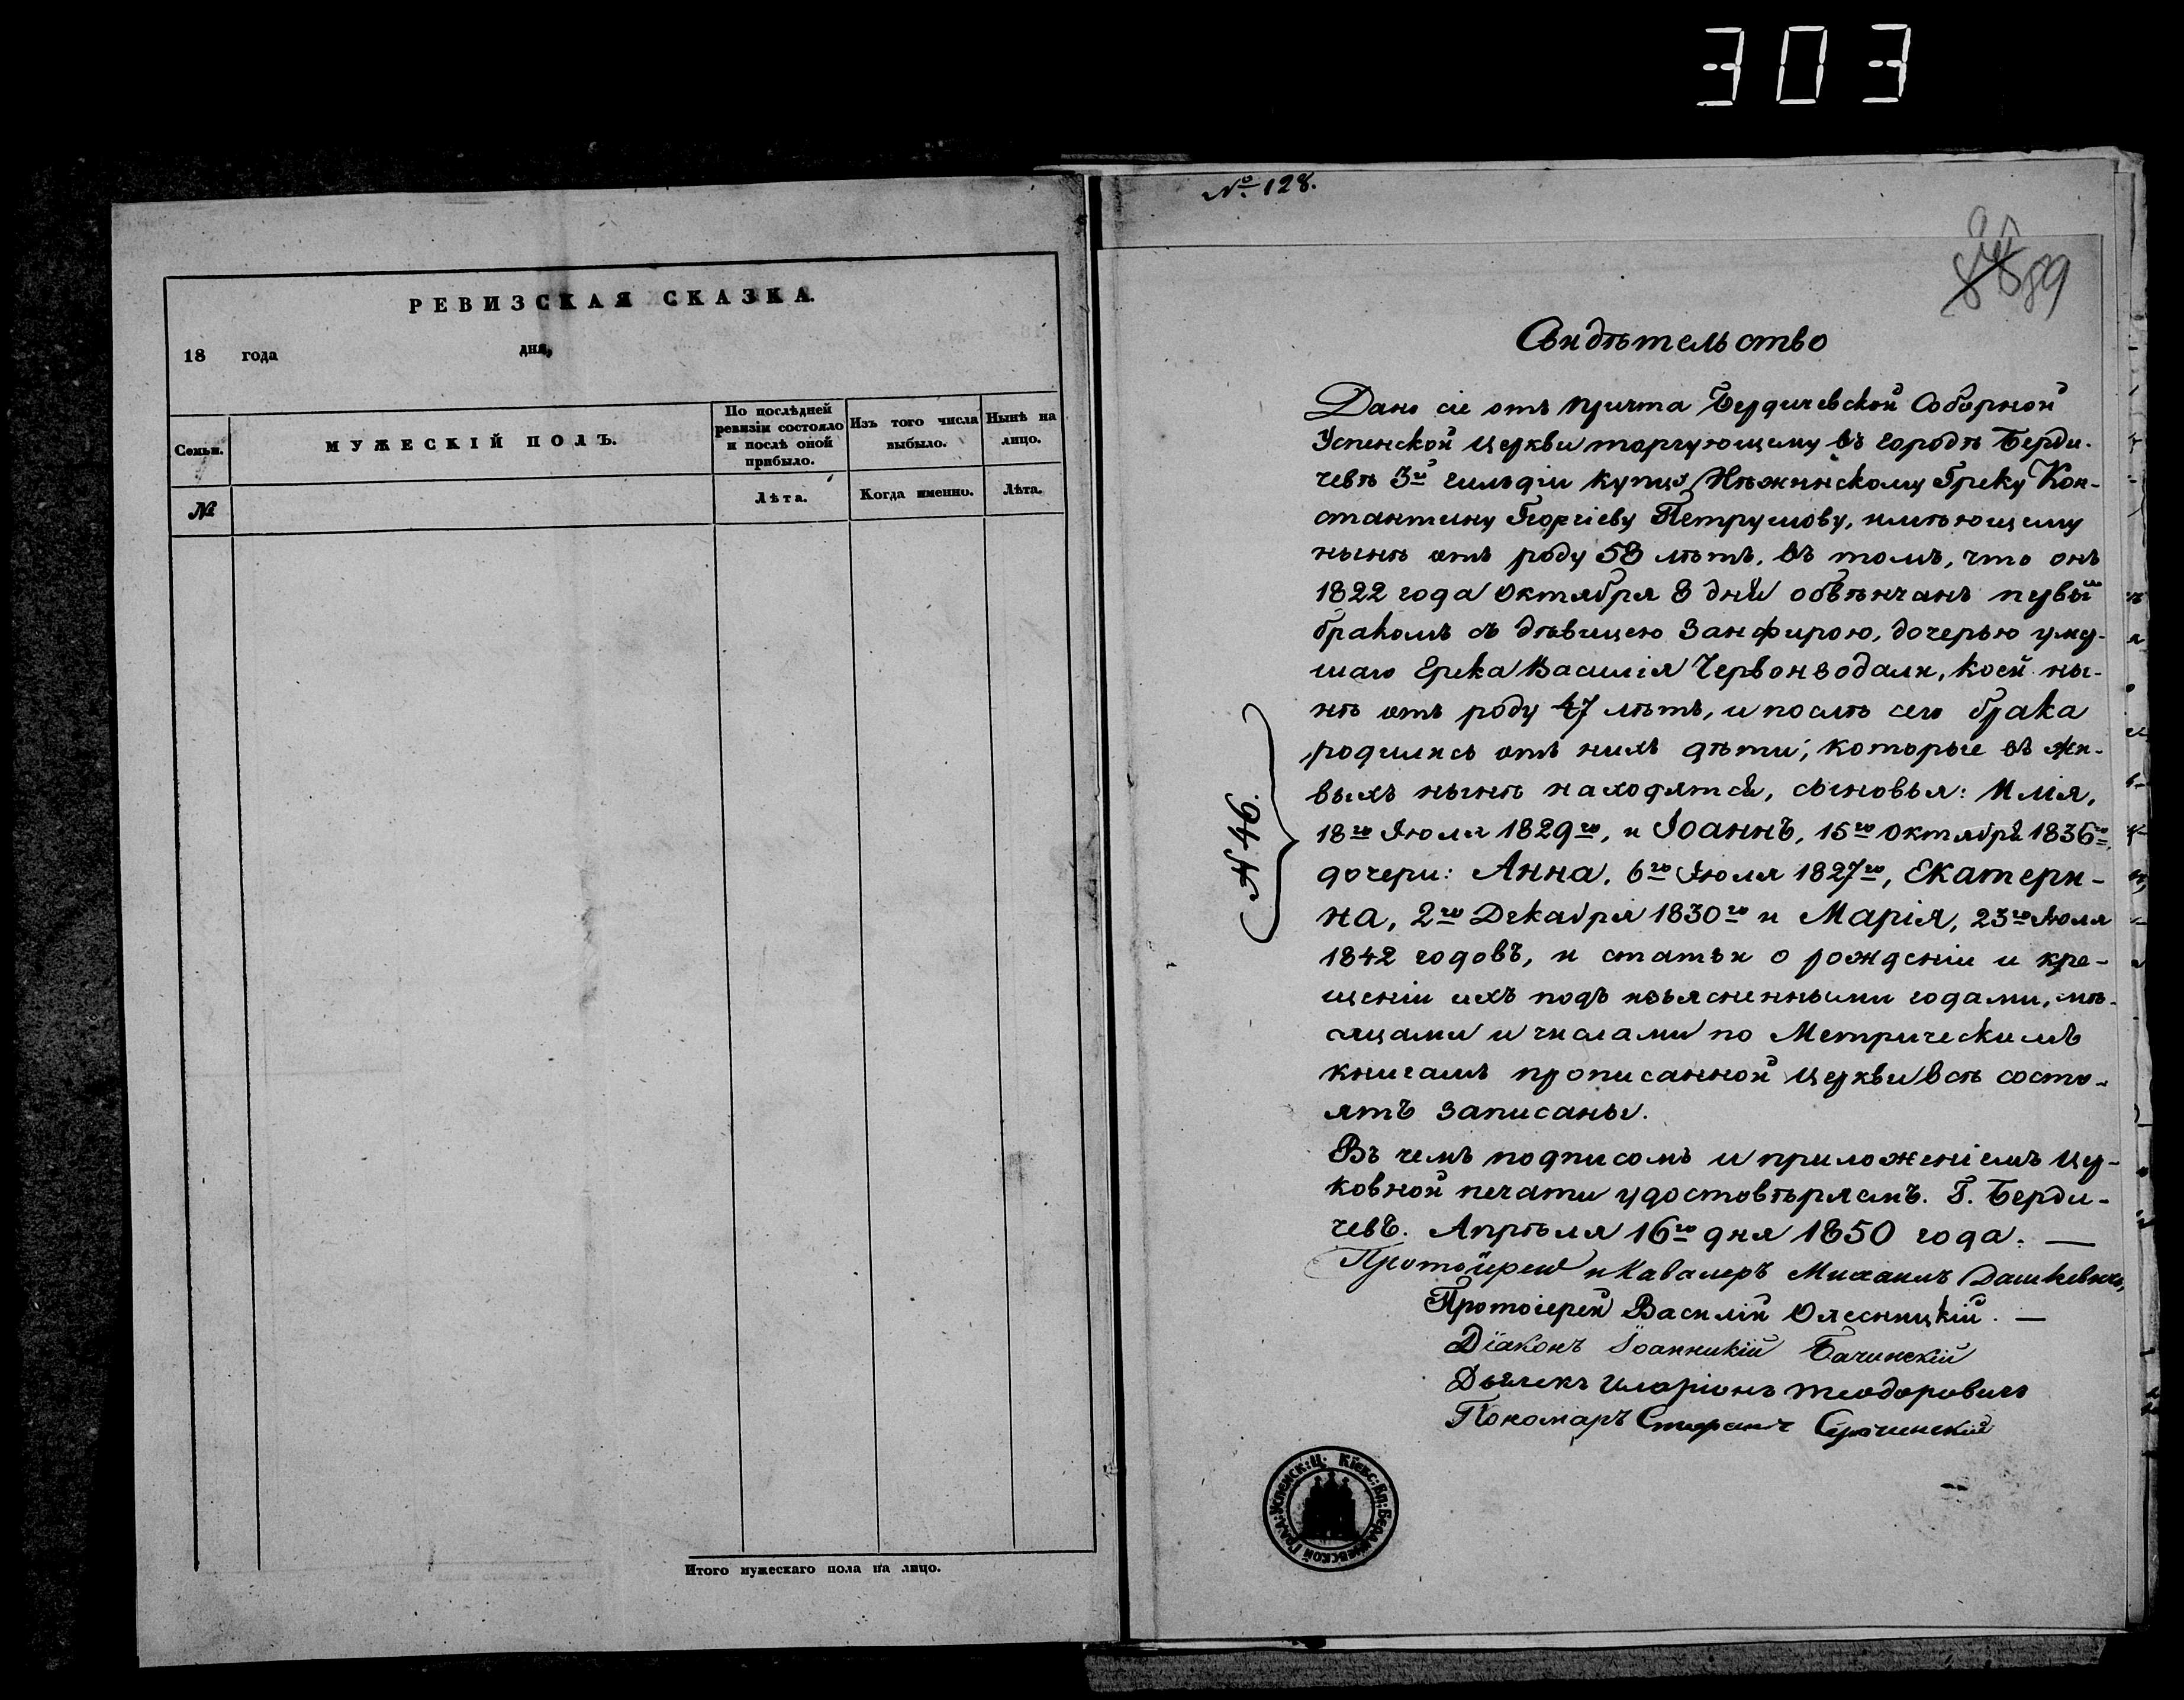 303
РЕВИЗСКАЯ СКАЗКА.
18 года дня,
Семьи.
МУЖЕСКІЙ ПОЛЪ.
По послѣдней
ревизіи состояло
и послѣ оной
прибыло.
Изъ того числа
выбыло.
Нынѣ на
лицо.
№
Лѣта.
Когда именно.
Лѣта.
Итого мужескаго пола на лицо.
№ 128.
89
Свидѣтельство
Дано сіе отъ причта Бердичевской Соборной
Успенской церкви торгующему въ городѣ Берди-
чевѣ 3й гильдіи купцу Нѣжинскому Греку Кон-
стантину Георгіеву Петрушову, имѣющему
нынѣ отъ роду 58 лѣтъ, въ томъ, что онъ
1822 года Октября 8 дня обвѣнчанъ первымъ
бракомъ съ дѣвицею Занфирою, дочерью умер-
шаго Грека Василія Червонводали, коей ны-
нѣ отъ роду 47 лѣтъ, и послѣ сего брака
родились отъ нихъ дѣти, которые въ жи-
выхъ нынѣ находятся, сыновья: Илія,
18го Іюля 1829го, и Іоаннъ, 15го Октября 1836го,
дочери: Анна, 6го Іюля 1827го, Екатери-
на, 2го Декабря 1830го и Марія, 23го Іюля
1842 годовъ, и статьи о рожденіи и кре-
щеніи ихъ подъ изъясненными годами, мѣ-
сяцами и числами по Метрическимъ
книгамъ прописанной церкви всѣ состо-
ятъ записаны.
Въ чемъ подписомъ и приложеніемъ цер-
ковной печати удостовѣряемъ. Г. Берди-
чевъ. Апрѣля 16го дня 1850 года. —
Протоіерей и Кавалеръ Михаилъ Дашкевичъ,
Протоіерей Василій Олесницкій. —
Діаконъ Іоанникій Бачинскій
Дьячекъ Иларіонъ Теодоровичъ
Пономарь Стефанъ
№ 46.
Кіевс: Еп: Бердичевской Град: Успенск: Ц: